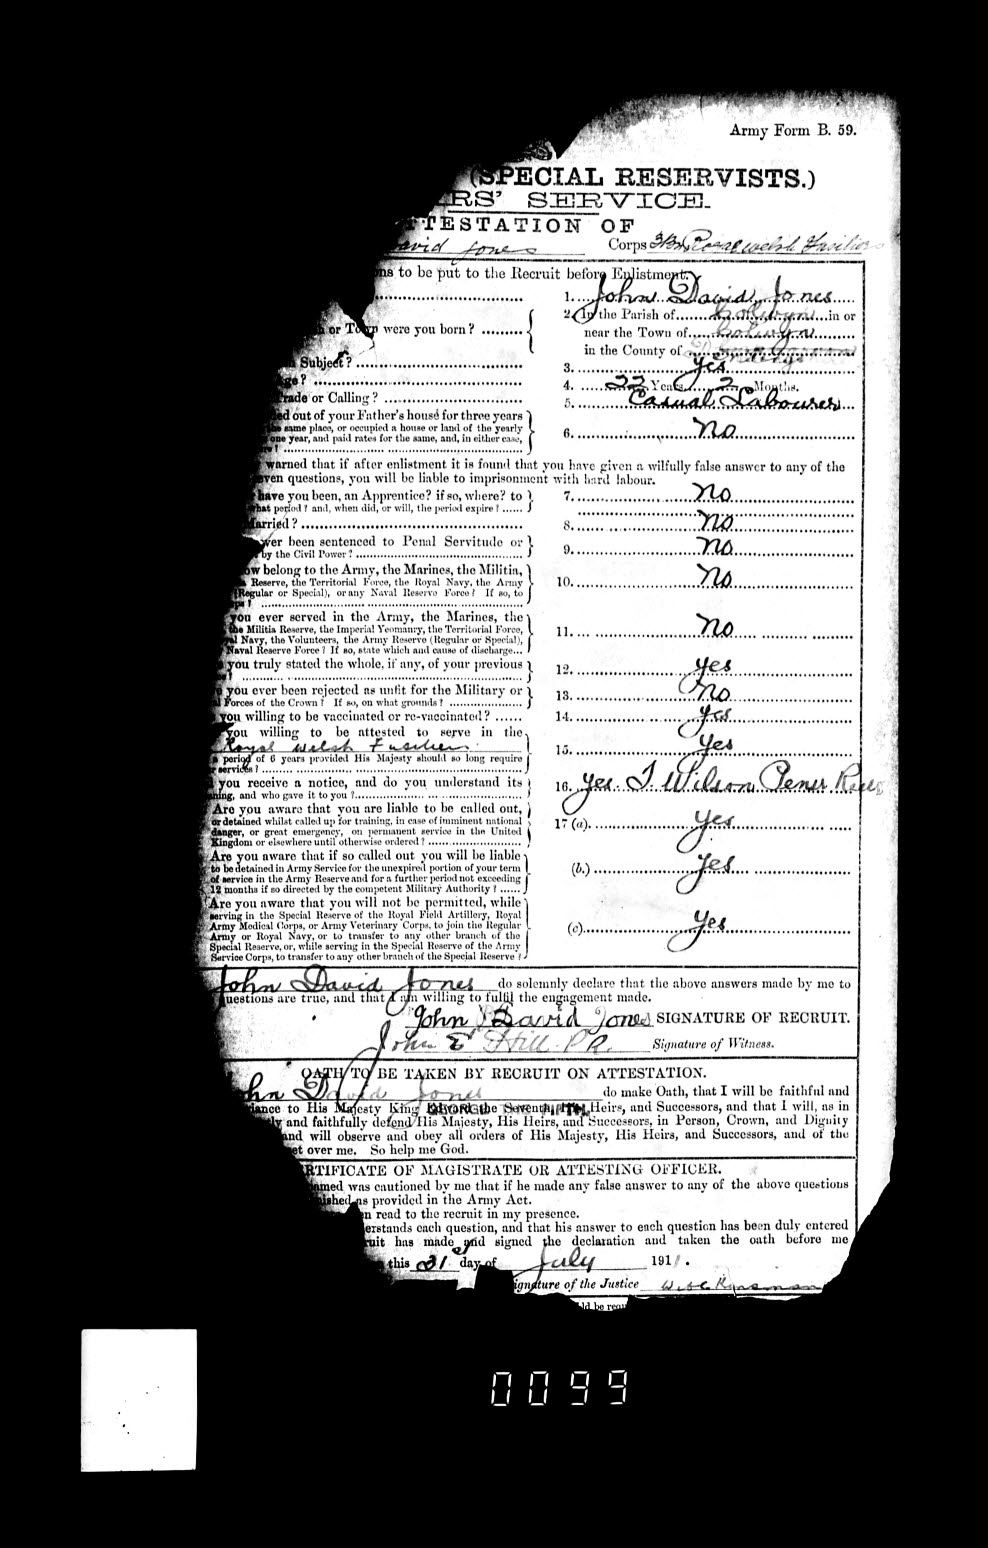 Army Form B. 59.
(SPECIAL RESERVISTS.)
RS' SERVICE.
TTESTATION OF
David Jones Corps 3 Bn Royal Welsh Fusiliers
ns to be put to the Recruit before Enlistment.
1. John David Jones
2. In the Parish of Colwyn in or
or Town were you born? near the Town of Colwyn
in the County of
Subject? 3. Yes
ge? 4. 22 Years 2 Months.
rade or Calling? 5. Casual Labourer
ed out of your Father's house for three years
he same place, or occupied a house or land of the yearly
one year, and paid rates for the same, and, in either case, 6. No
warned that if after enlistment it is found that you have given a wilfully false answer to any of the
even questions, you will be liable to imprisonment with hard labour.
have you been, an Apprentice? if so, where? to 7. No
hat period? and, when did, or will, the period expire?
arried? 8. No
ver been sentenced to Penal Servitude or 9. No
by the Civil Power?
ow belong to the Army, the Marines, the Militia,
Reserve, the Territorial Force, the Royal Navy, the Army 10. No
(Regular or Special), or any Naval Reserve Force? If so, to
ps?
you ever served in the Army, the Marines, the
the Militia Reserve, the Imperial Yeomanry, the Territorial Force, 11. No
al Navy, the Volunteers, the Army Reserve (Regular or Special),
Naval Reserve Force? If so, state which and cause of discharge...
you truly stated the whole, if any, of your previous 12. Yes
you ever been rejected as unfit for the Military or 13. No
l Forces of the Crown? If so, on what grounds?
you willing to be vaccinated or re-vaccinated? 14. Yes
you willing to be attested to serve in the
Royal Welsh Fusiliers 15. Yes
a period of 6 years provided His Majesty should so long require
r services?
you receive a notice, and do you understand its 16. Yes T Wilson
ning, and who gave it to you?
Are you aware that you are liable to be called out, 17 (a). Yes
or detained whilst called up for training, in case of imminent national
danger, or great emergency, on permanent service in the United
Kingdom or elsewhere until otherwise ordered?
Are you aware that if so called out you will be liable
to be detained in Army Service for the unexpired portion of your term (b.) Yes
of service in the Army Reserve and for a further period not exceeding
12 months if so directed by the competent Military Authority?
Are you aware that you will not be permitted, while
serving in the Special Reserve of the Royal Field Artillery, Royal
Army Medical Corps, or Army Veterinary Corps, to join the Regular (c) Yes
Army or Royal Navy, or to transfer to any other branch of the
Special Reserve, or, while serving in the Special Reserve of the Army
Service Corps, to transfer to any other branch of the Special Reserve?
John David Jones do solemnly declare that the above answers made by me to
uestions are true, and that I am willing to fulfil the engagement made.
John David Jones SIGNATURE OF RECRUIT.
John E Hill Signature of Witness.
OATH TO BE TAKEN BY RECRUIT ON ATTESTATION.
hn David Jones do make Oath, that I will be faithful and
iance to His Majesty King GEORGE the FIFTH, Heirs, and Successors, and that I will, as in
ly and faithfully defend His Majesty, His Heirs, and Successors, in Person, Crown, and Dignity
and will observe and obey all orders of His Majesty, His Heirs, and Successors, and of the
et over me. So help me God.
RTIFICATE OF MAGISTRATE OR ATTESTING OFFICER.
amed was cautioned by me that if he made any false answer to any of the above questions
nished as provided in the Army Act.
en read to the recruit in my presence.
erstands each question, and that his answer to each question has been duly entered
ruit has made and signed the declaration and taken the oath before me
this 31st day of July 1911.
ignature of the Justice
0099